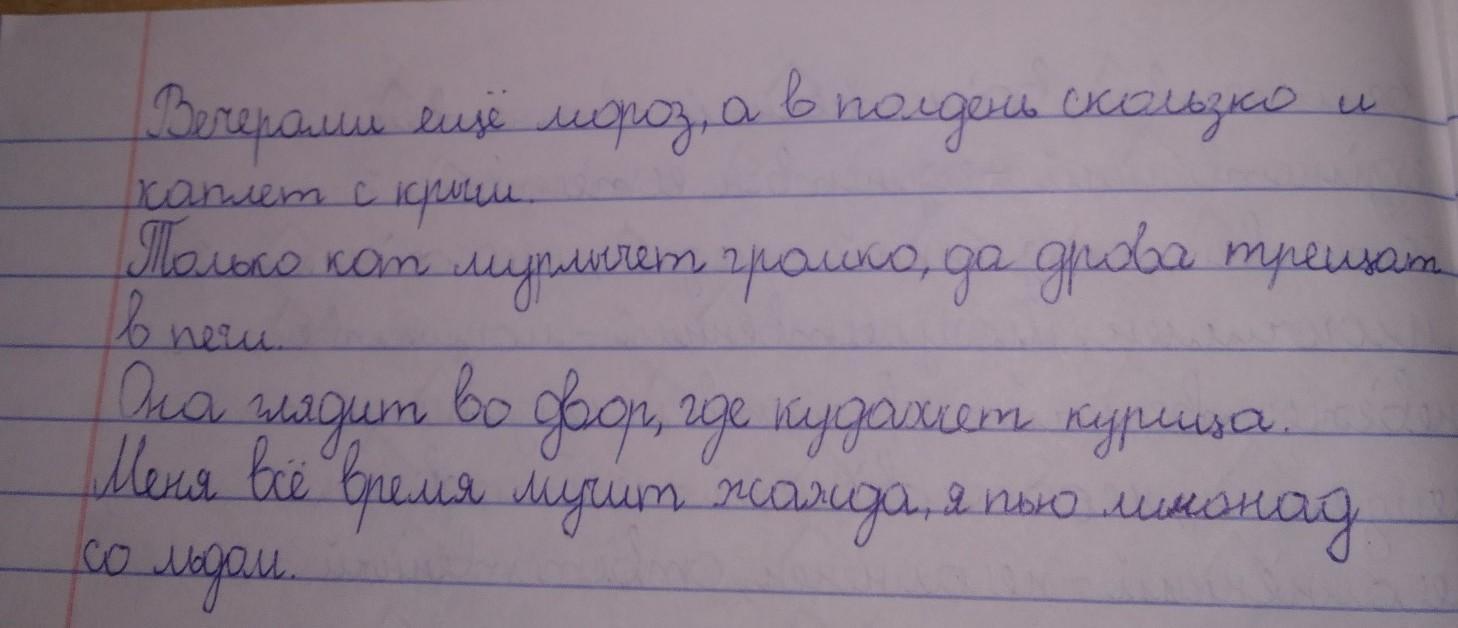 Вечерами ещё мороз, а в полдень скользко и
каплет с крыши.
Только кот мурлычет громко, да дрова трещат
в печи.
Она глядит во двор, где кудахчет курица.
Меня всё время мучит жажда, я пью лимонад
со льдом.